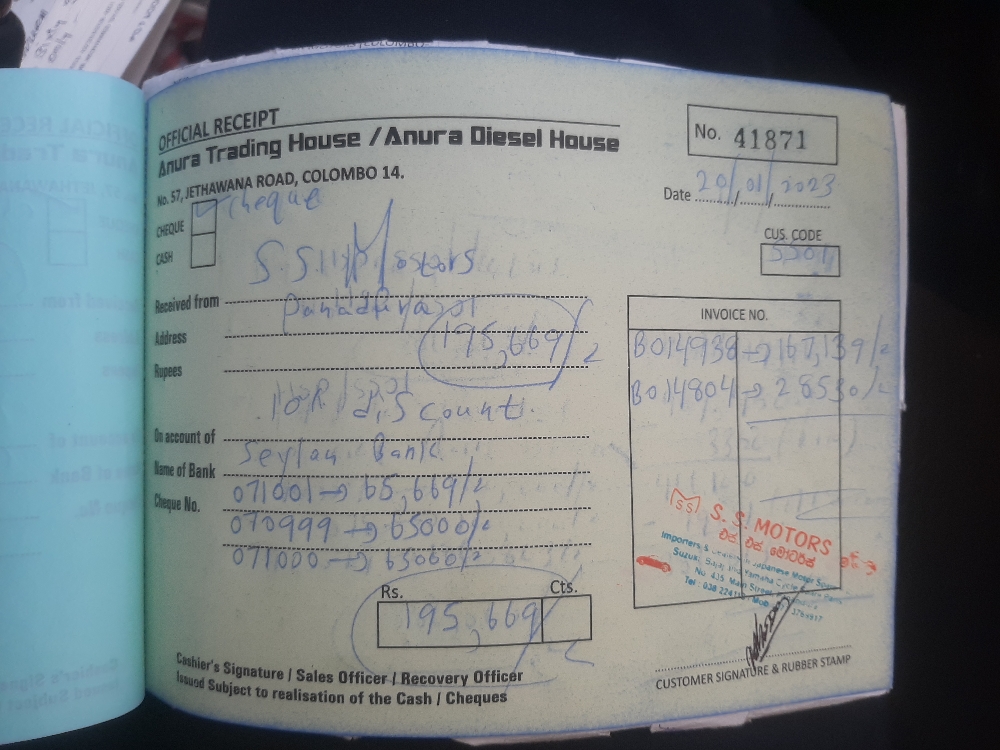 OFFICIAL RECEIPT
Anura Trading House / Anura Diesel House
No. 57, JETHAWANA ROAD, COLOMBO 14.
No. 41871
Date 20/01/2023
CHEQUE cheque
CASH
CUS. CODE
Received from S.S Motors
Address Panadura
Rupees 195,669/=
discount.
On account of
Name of Bank Seylan Bank
Cheque No. 071001 → 65,669/=
070999 → 65000/=
071000 → 65000/=
INVOICE NO.
B014938 → 167,139/=
B014804 → 28530/=
SS S. S. MOTORS
එස් එස් මෝටර්ස්
Importers &
Suzuki, Bajaj Yamaha Cycle
Main Street
Tel : 038
Rs. Cts.
195,669/=
Cashier's Signature / Sales Officer / Recovery Officer
Issued Subject to realisation of the Cash / Cheques
CUSTOMER SIGNATURE & RUBBER STAMP